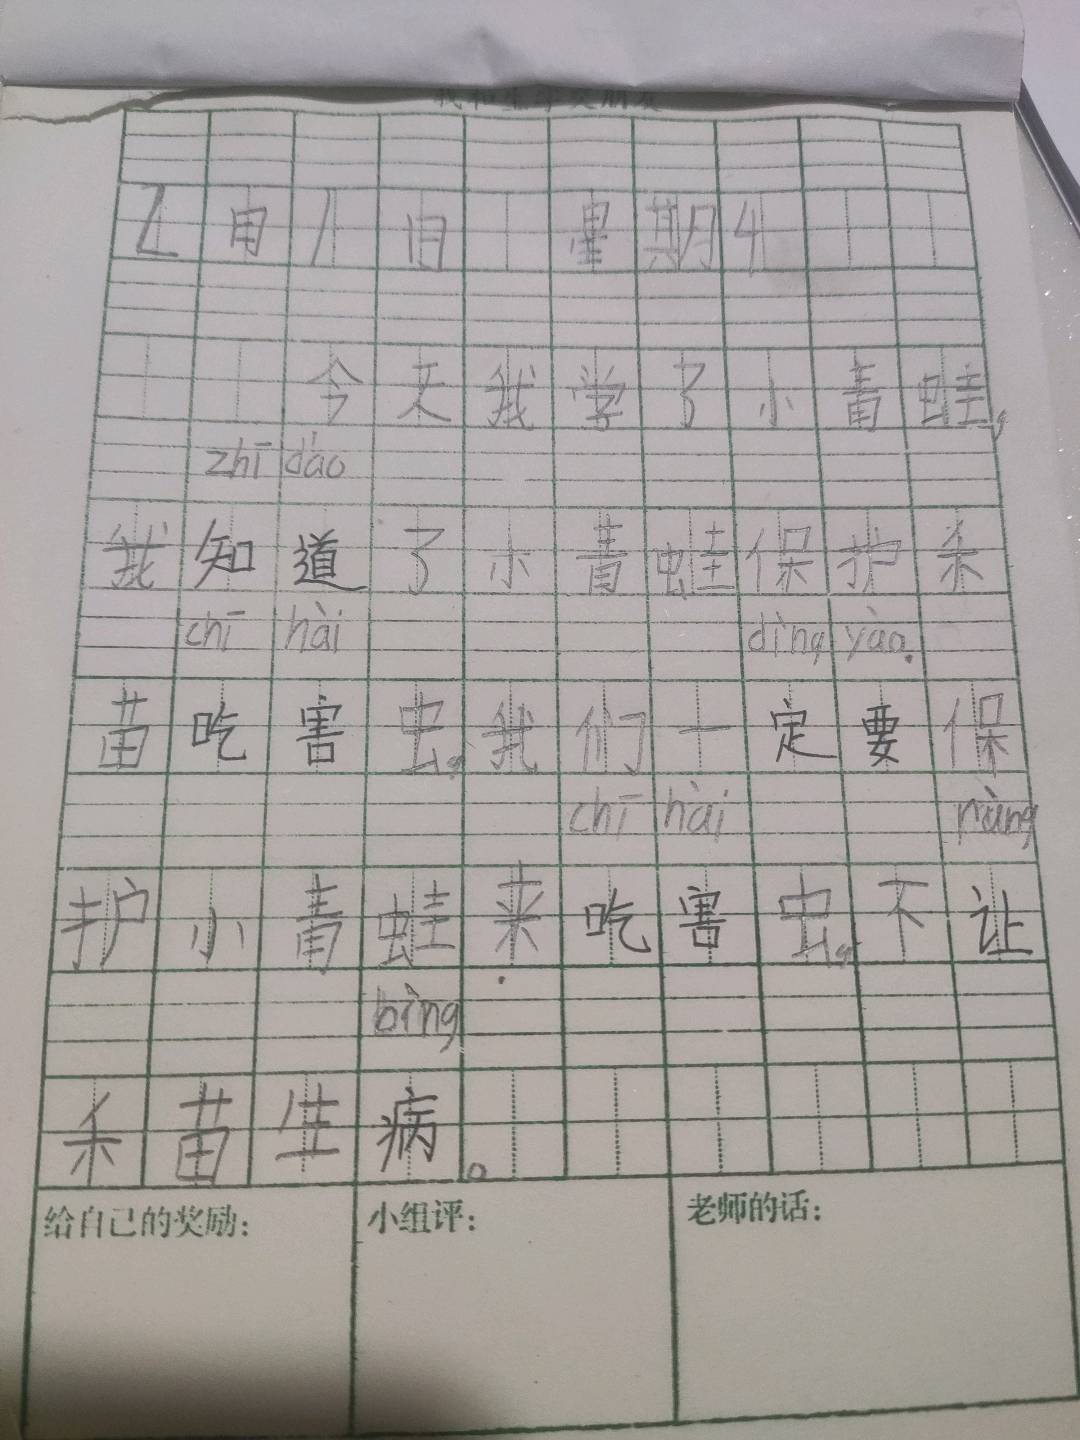 2月1日 星期4
今天我学了小青蛙,
zhī dào
我知道了小青蛙保护禾
chī hài dìng yào
苗吃害虫。我们一定要保
chī hài ràng
护小青蛙来吃害虫。不让
bìng
禾苗生病。
给自己的奖励: 小组评: 老师的话: